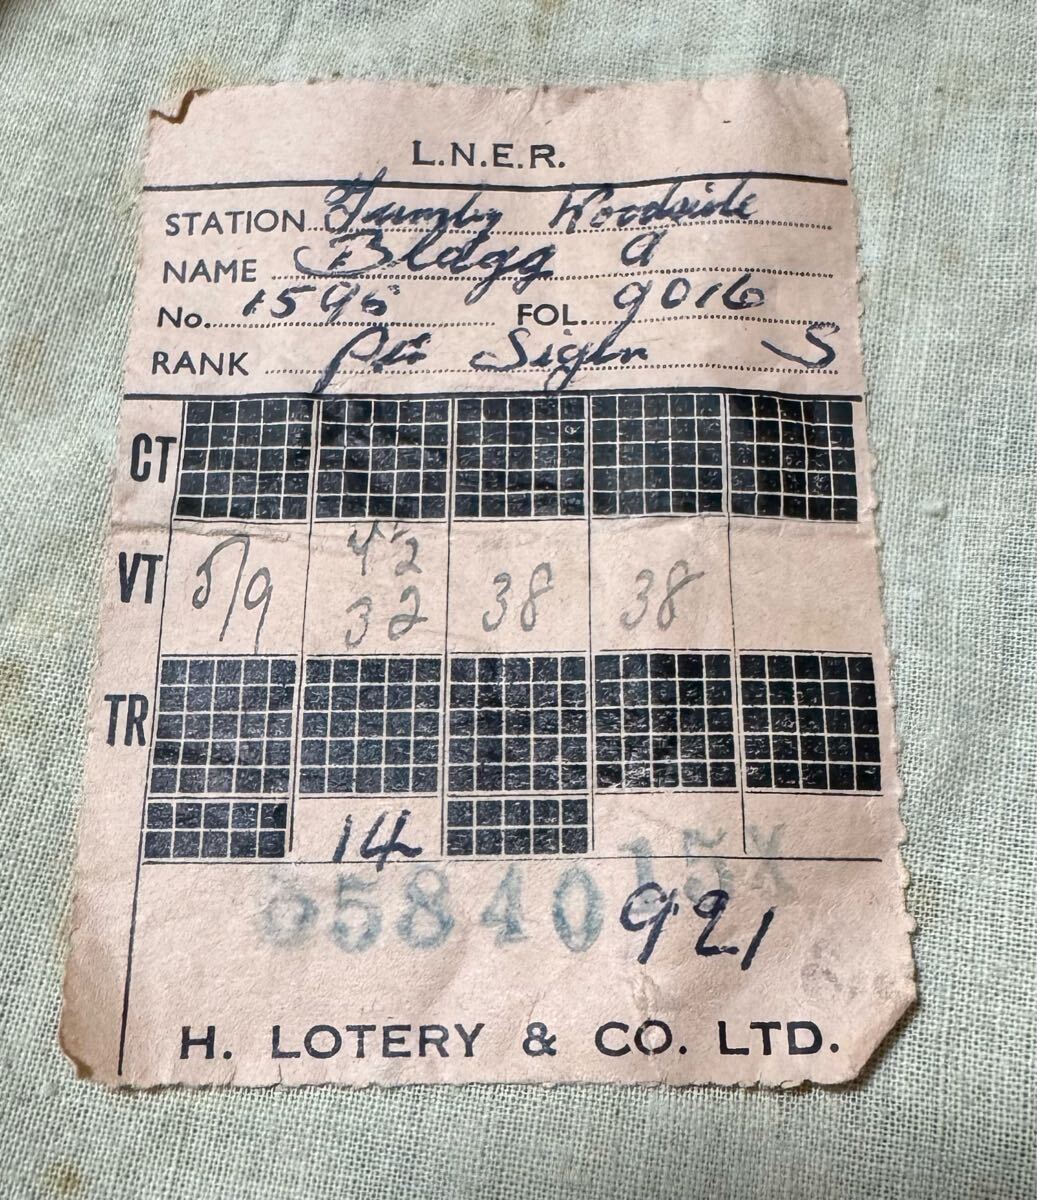 L.N.E.R.
STATION Woodside
NAME Bldgg a
No. 1596 FOL. 9016
RANK S
CT
VT 5/9 42 38 38
32
TR
14
55840 15x
921
H. LOTERY & CO. LTD.